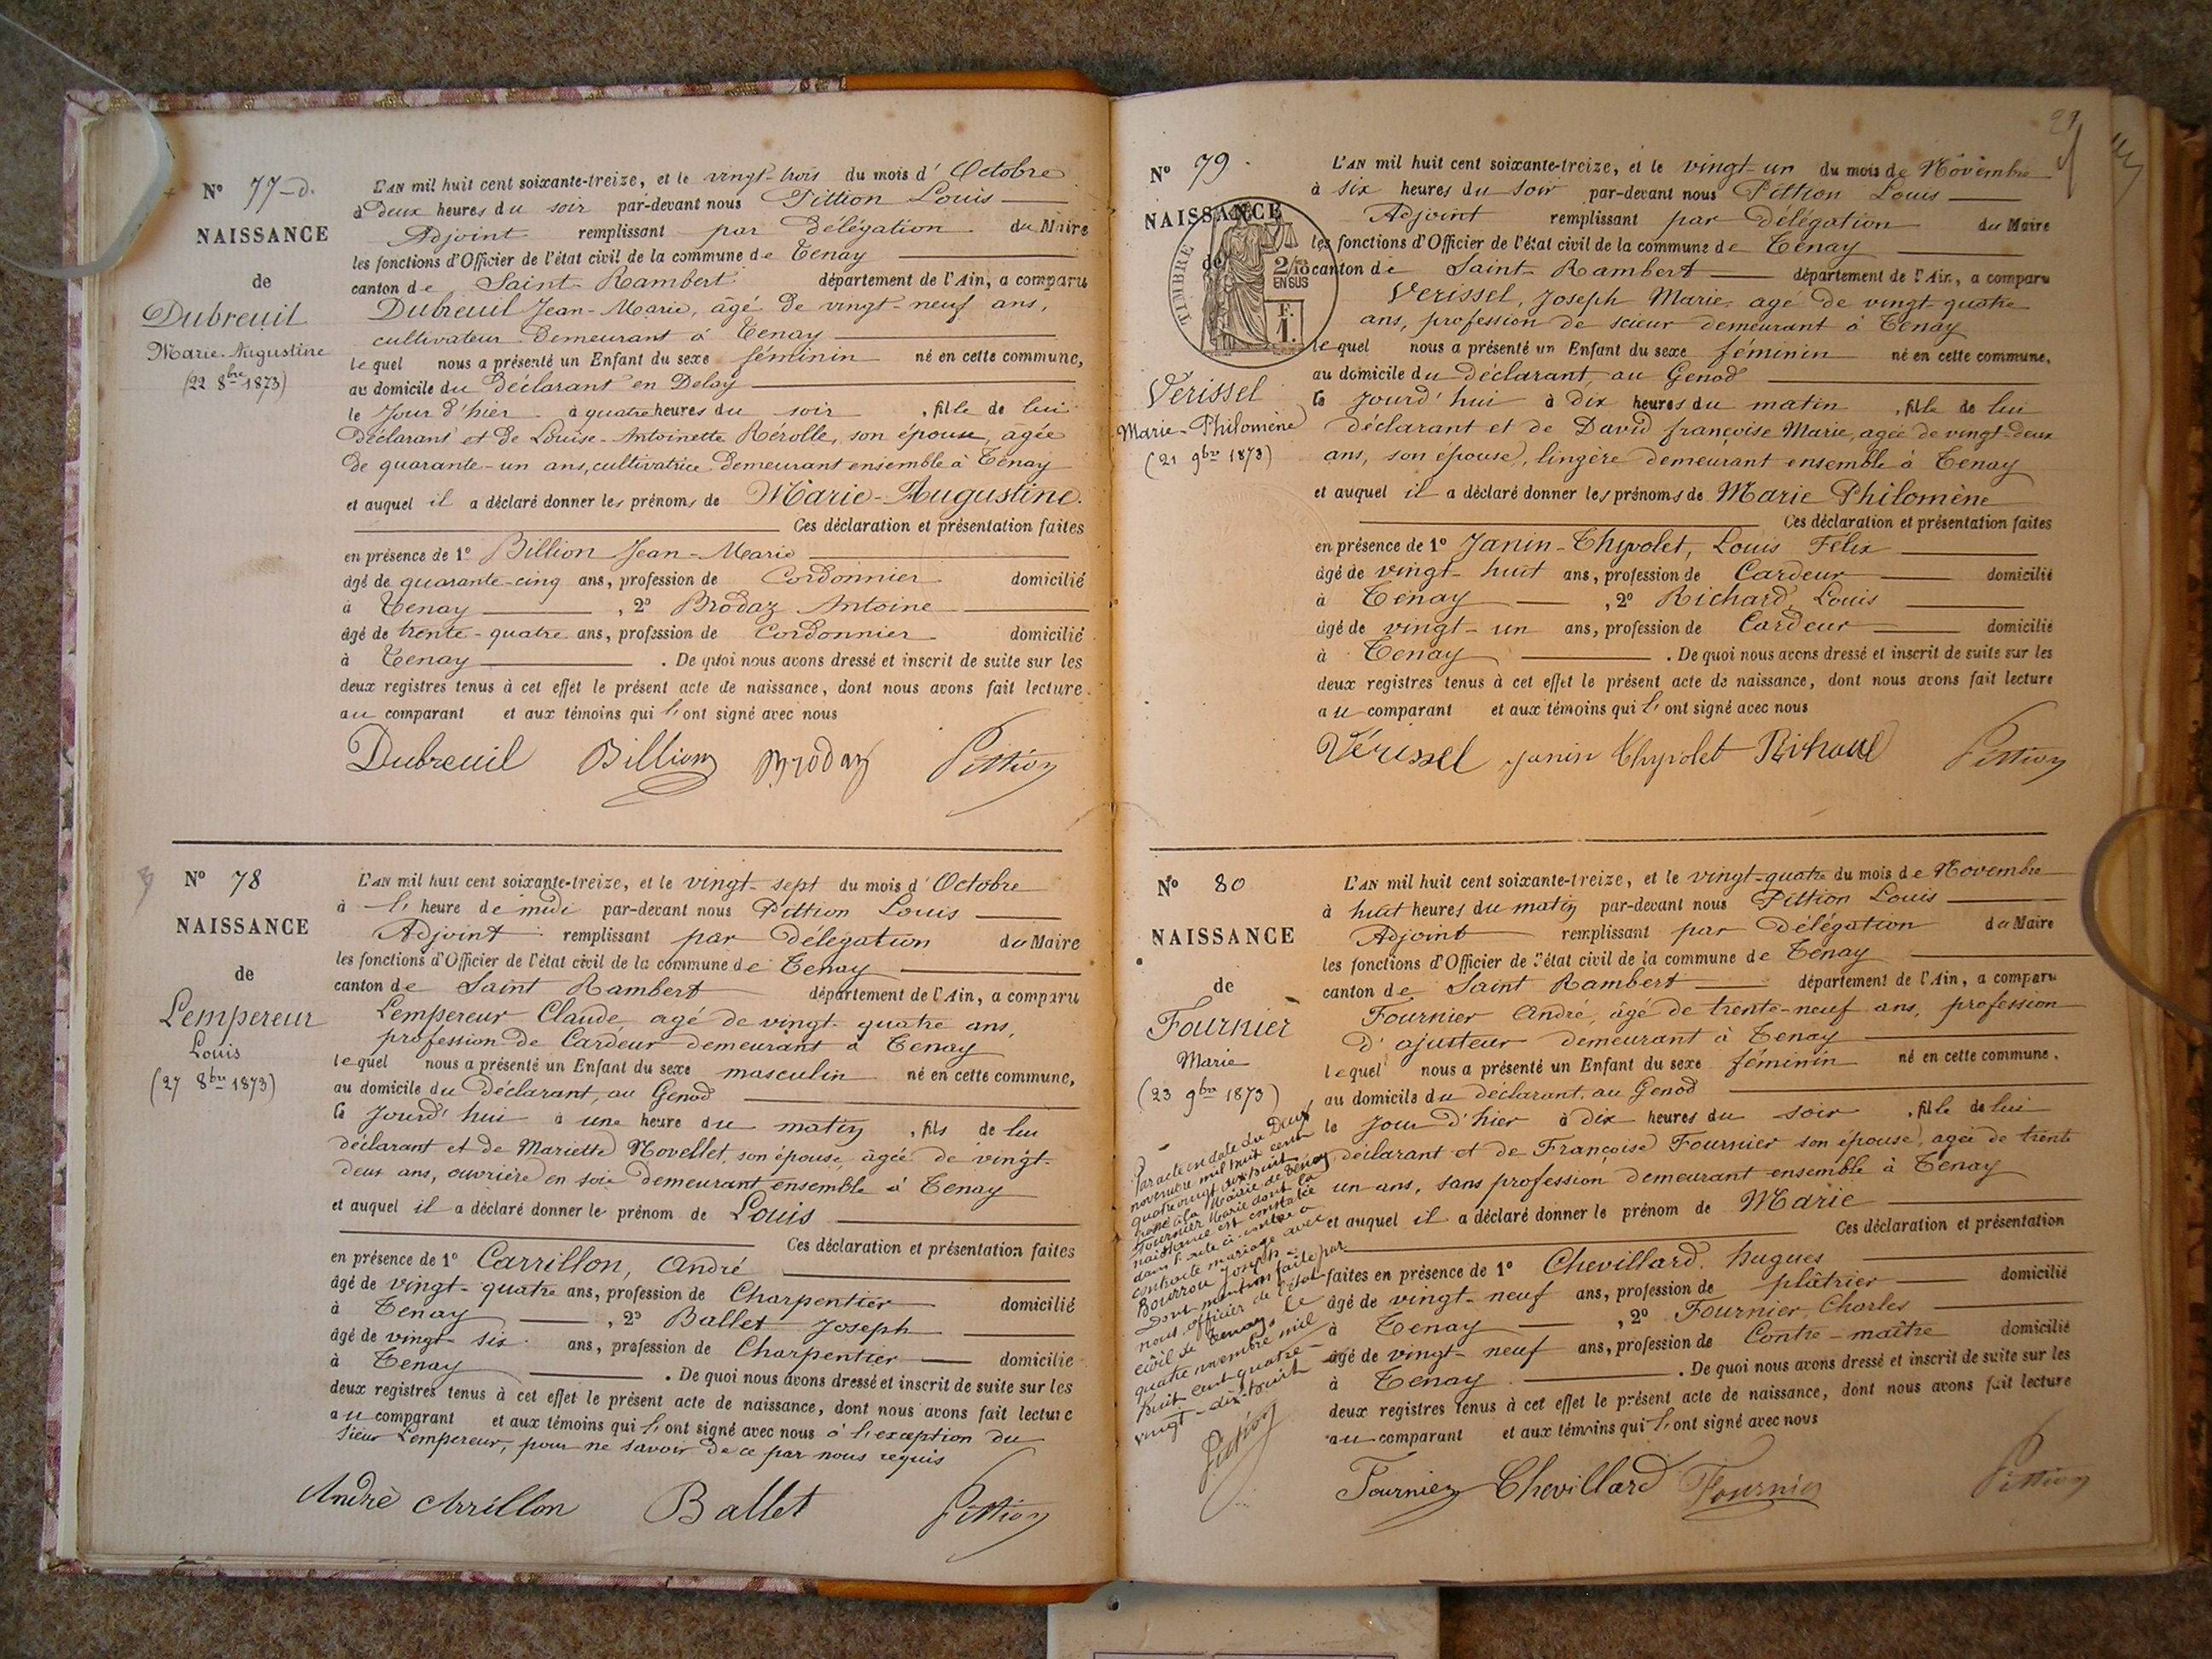 Nº 77-d.
NAISSANCE
de
Dubreuil
Marie-Augustine
(22 8bre 1873)
L'AN mil huit cent soixante-treize, et le vingt-trois du mois d' Octobre
à Deux heures du soir par-devant nous Pittion Louis
Adjoint remplissant par Délégation du Maire
les fonctions d'Officier de l'état civil de la commune de Tenay
canton de Saint-Rambert département de l'Ain, a comparu
Dubreuil Jean-Marie, âgé de vingt-neuf ans,
cultivateur demeurant à Tenay
lequel nous a présenté un Enfant du sexe féminin né en cette commune,
au domicile du Déclarant en Delay
le Jour d'hier à quatre heures du soir , fille de lui
Déclarant et de Louise-Antoinette Rérolle, son épouse, âgée
de quarante-un ans, cultivatrice demeurant ensemble à Tenay
et auquel il a déclaré donner les prénoms de Marie-Augustine.
Ces déclaration et présentation faites
en présence de 1º Billion Jean-Marie
âgé de quarante-cinq ans, profession de Cordonnier domicilié
à Tenay , 2º Brodaz Antoine
âgé de trente-quatre ans, profession de Cordonnier domicilié
à Tenay . De quoi nous avons dressé et inscrit de suite sur les
deux registres tenus à cet effet le présent acte de naissance, dont nous avons fait lecture
au comparant et aux témoins qui l'ont signé avec nous
Dubreuil Billion Brodaz Pittion
Nº 78
NAISSANCE
de
Lempereur
Louis
(27 8bre 1873)
L'AN mil huit cent soixante-treize, et le vingt-sept du mois d' Octobre
à l' heure de midi par-devant nous Pittion Louis
Adjoint remplissant par Délégation du Maire
les fonctions d'Officier de l'état civil de la commune de Tenay
canton de Saint Rambert département de l'Ain, a comparu
Lempereur Claude agé de vingt-quatre ans,
profession de Cardeur demeurant à Tenay
lequel nous a présenté un Enfant du sexe masculin né en cette commune,
au domicile du Déclarant, au Genod
le Jourd'hui à une heure du matin , fils de lui
déclarant et de Mariette Novellet, son épouse, âgée de vingt-
deux ans, ouvrière en soie demeurant ensemble à Tenay
et auquel il a déclaré donner le prénom de Louis
Ces déclaration et présentation faites
en présence de 1º Carrillon, André
âgé de vingt-quatre ans, profession de Charpentier domicilié
à Tenay , 2º Ballet Joseph
âgé de vingt-six ans, profession de Charpentier domicilié
à Tenay . De quoi nous avons dressé et inscrit de suite sur les
deux registres tenus à cet effet le présent acte de naissance, dont nous avons fait lecture
au comparant et aux témoins qui l'ont signé avec nous à l'exception du
sieur Lempereur, pour ne savoir de ce par nous requis
André Carrillon Ballet Pittion
Nº 79
NAISSANCE
de
TIMBRE
2/10
EN SUS
F.
1.
Vérissel
Marie-Philomène
(21 9bre 1873)
L'AN mil huit cent soixante-treize, et le vingt-un du mois de Novembre
à six heures du soir par-devant nous Pittion Louis
Adjoint remplissant par Délégation du Maire
les fonctions d'Officier de l'état civil de la commune de Tenay
canton de Saint-Rambert département de l'Ain, a comparu
Verissel, Joseph Marie, agé de vingt-quatre
ans, profession de scieur demeurant à Tenay
lequel nous a présenté un Enfant du sexe féminin né en cette commune,
au domicile du Déclarant, au Genod
le Jourd'hui à dix heures du matin , fille de lui
déclarant et de David françoise Marie, agée de vingt-deux
ans, son épouse, lingère demeurant ensemble à Tenay
et auquel il a déclaré donner les prénoms de Marie Philomène
Ces déclaration et présentation faites
en présence de 1º Janin-Thyvolet, Louis Félix
âgé de vingt-huit ans, profession de Cardeur domicilié
à Tenay , 2º Richard, Louis
âgé de vingt-un ans, profession de Cardeur domicilié
à Tenay . De quoi nous avons dressé et inscrit de suite sur les
deux registres tenus à cet effet le présent acte de naissance, dont nous avons fait lecture
au comparant et aux témoins qui l'ont signé avec nous
Vérissel Janin Thyvolet Richard Pittion
Nº 80
NAISSANCE
de
Fournier
Marie
(23 9bre 1873)
Par acte en date du Deux
novembre mil huit cent
quatre vingt dix huit
passé à la Mairie de Tenay
Fournier Marie dont la
naissance est constatée
dans l'acte ci-contre a
contracté mariage avec
Bourrou Joseph-
Dont mention faite par
nous officier de l'état
civil de Tenay, le
quatre novembre mil
huit cent quatre-
vingt-dix-huit
Pittion
L'AN mil huit cent soixante-treize, et le vingt-quatre du mois de Novembre
à huit heures du matin par-devant nous Pittion Louis
Adjoint remplissant par Délégation du Maire
les fonctions d'Officier de l'état civil de la commune de Tenay
canton de Saint Rambert département de l'Ain, a comparu
Fournier André, âgé de trente-neuf ans, profession
d'ajusteur demeurant à Tenay
lequel nous a présenté un Enfant du sexe féminin né en cette commune,
au domicile du déclarant, au Genod
le Jour d'hier à dix heures du soir , fille de lui
déclarant et de Françoise Fournier son épouse, agée de trente
un ans, sans profession demeurant ensemble à Tenay
et auquel il a déclaré donner le prénom de Marie
Ces déclaration et présentation
faites en présence de 1º Chevillard, hugues
âgé de vingt-neuf ans, profession de plâtrier domicilié
à Tenay , 2º Fournier, Charles
âgé de vingt-neuf ans, profession de Contre-maître domicilié
à Tenay . De quoi nous avons dressé et inscrit de suite sur les
deux registres tenus à cet effet le présent acte de naissance, dont nous avons fait lecture
au comparant et aux témoins qui l'ont signé avec nous
Fournier Chevillard Fournier Pittion